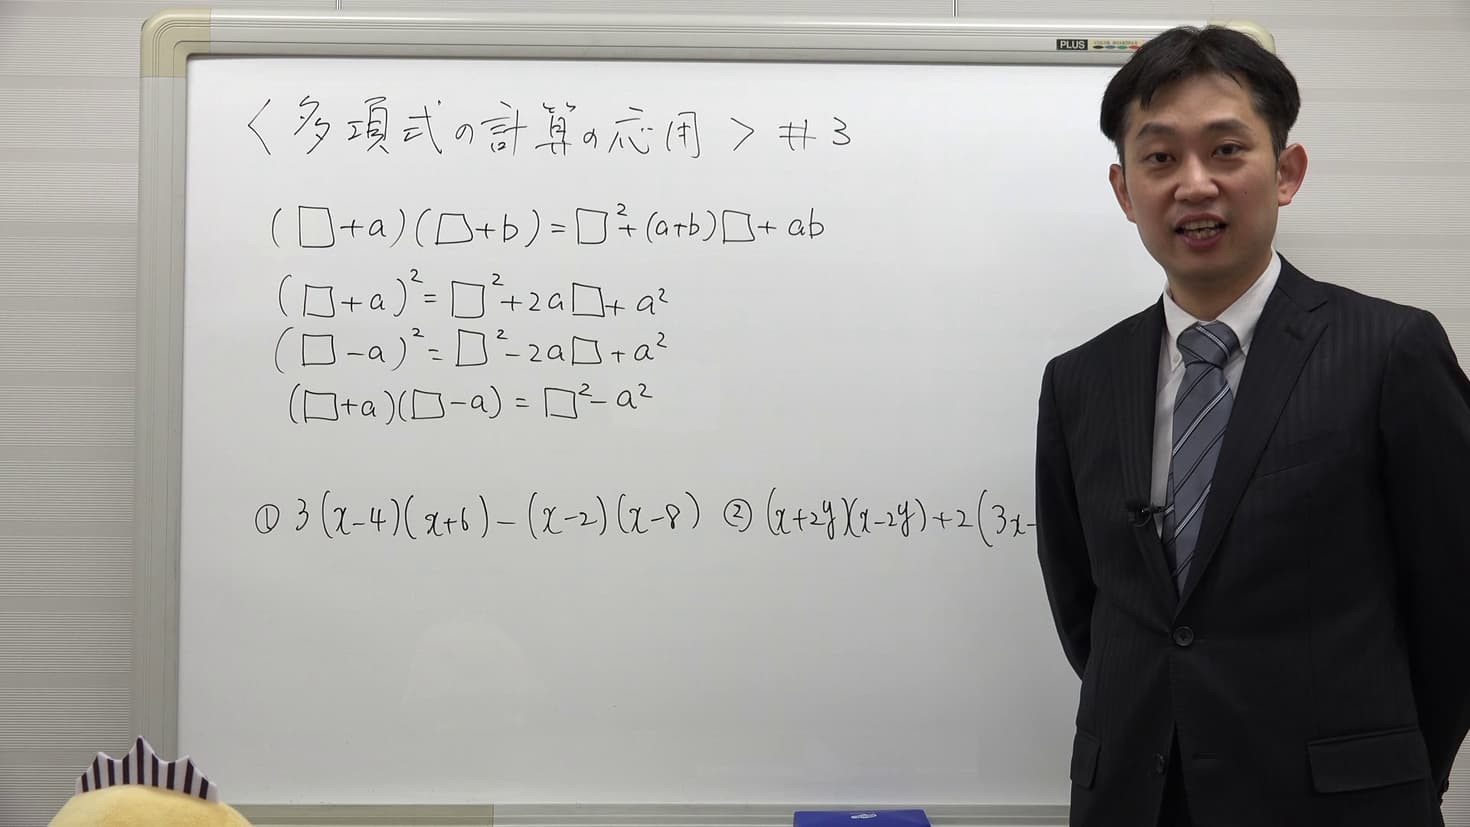 PLUS
＜多項式の計算の応用＞ #3
(□+a)(□+b)=□²+(a+b)□+ab
(□+a)²=□²+2a□+a²
(□-a)²=□²-2a□+a²
(□+a)(□-a)=□²-a²
① 3(x-4)(x+6)-(x-2)(x-8) ② (x+2y)(x-2y)+2(3x-